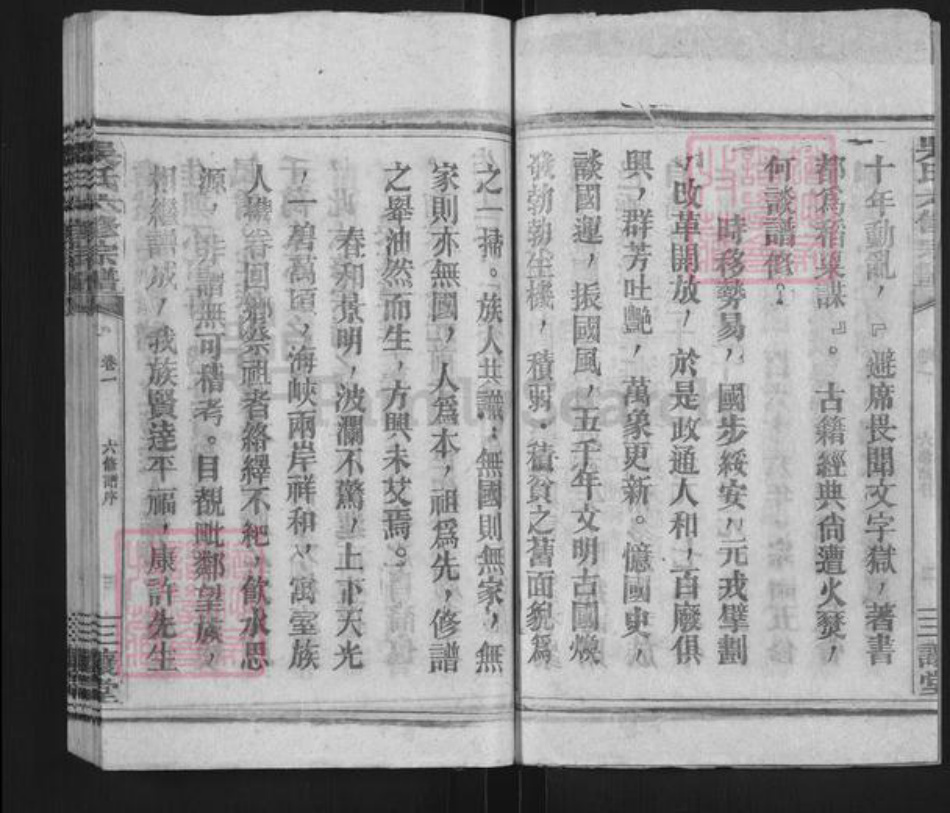 十年動亂，『避席畏聞文字獄，著書
都爲稻粱謀』。古籍經典尙遭火燹，
何談譜修。
時移勢易，國步綏安，元戎擘劃
，改革開放，於是政通人和，百廢俱
興，群芳吐艷，萬象更新。憶國史，
談國運，振國風，五千年文明古國煥
發勃勃生機，積弱．積貧之舊面貌爲
之一掃。族人共識：無國則無家，無
家則亦無國，人爲本，祖爲先，修譜
之舉油然而生，方興未艾焉。
春和景明，波瀾不驚，上下天光
，一碧萬頃，海峽兩岸祥和，寓室族
人襁眷回鄉祭祖者絡繹不絕，飲水思
源，非譜無可稽考。目覩毗鄰望族，
相繼譜成，我族賢達平福，康許先生
吳氏六修宗譜
卷一
六修譜序
三
三讓堂